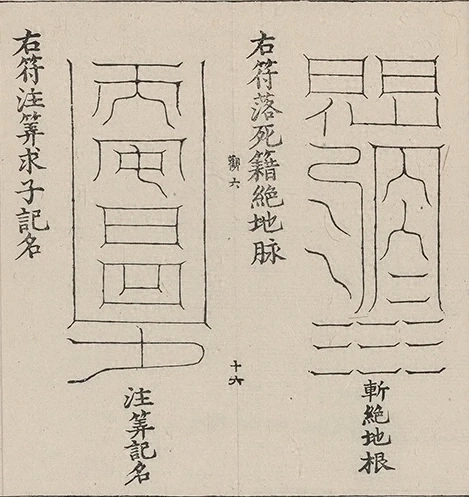 斬絕地根
右符落死籍絕地脉
十六
注筭記名
右符注筭求子記名